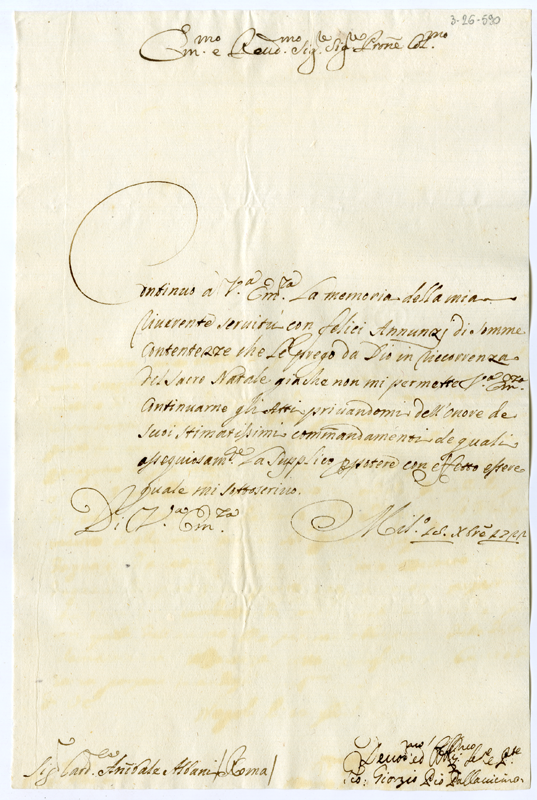 3-26-590
Em.mo e Reud.mo Sig.re Sig.re Prone Col.mo
Continuo à V.a Em.za La memoria della mia
riuerente seruitù con felici Annunzÿ di somme
Contentezze che Le prego da Dio in riccorrenza
del Sacro Natale giache non mi permette V.a Em.za
Continuarne gli Atti priuandomi dell'onore de
suoi stimatissimi commandamenti de quali
ossequiosam.te La supplico p potere con effetto essere
quale mi sottoscriuo.
Di V.a Em.za
Mil.o 18. Xbre
Sig.r Card.le Anibale Albani / Roma /
Giorgio Pio Pallauicino